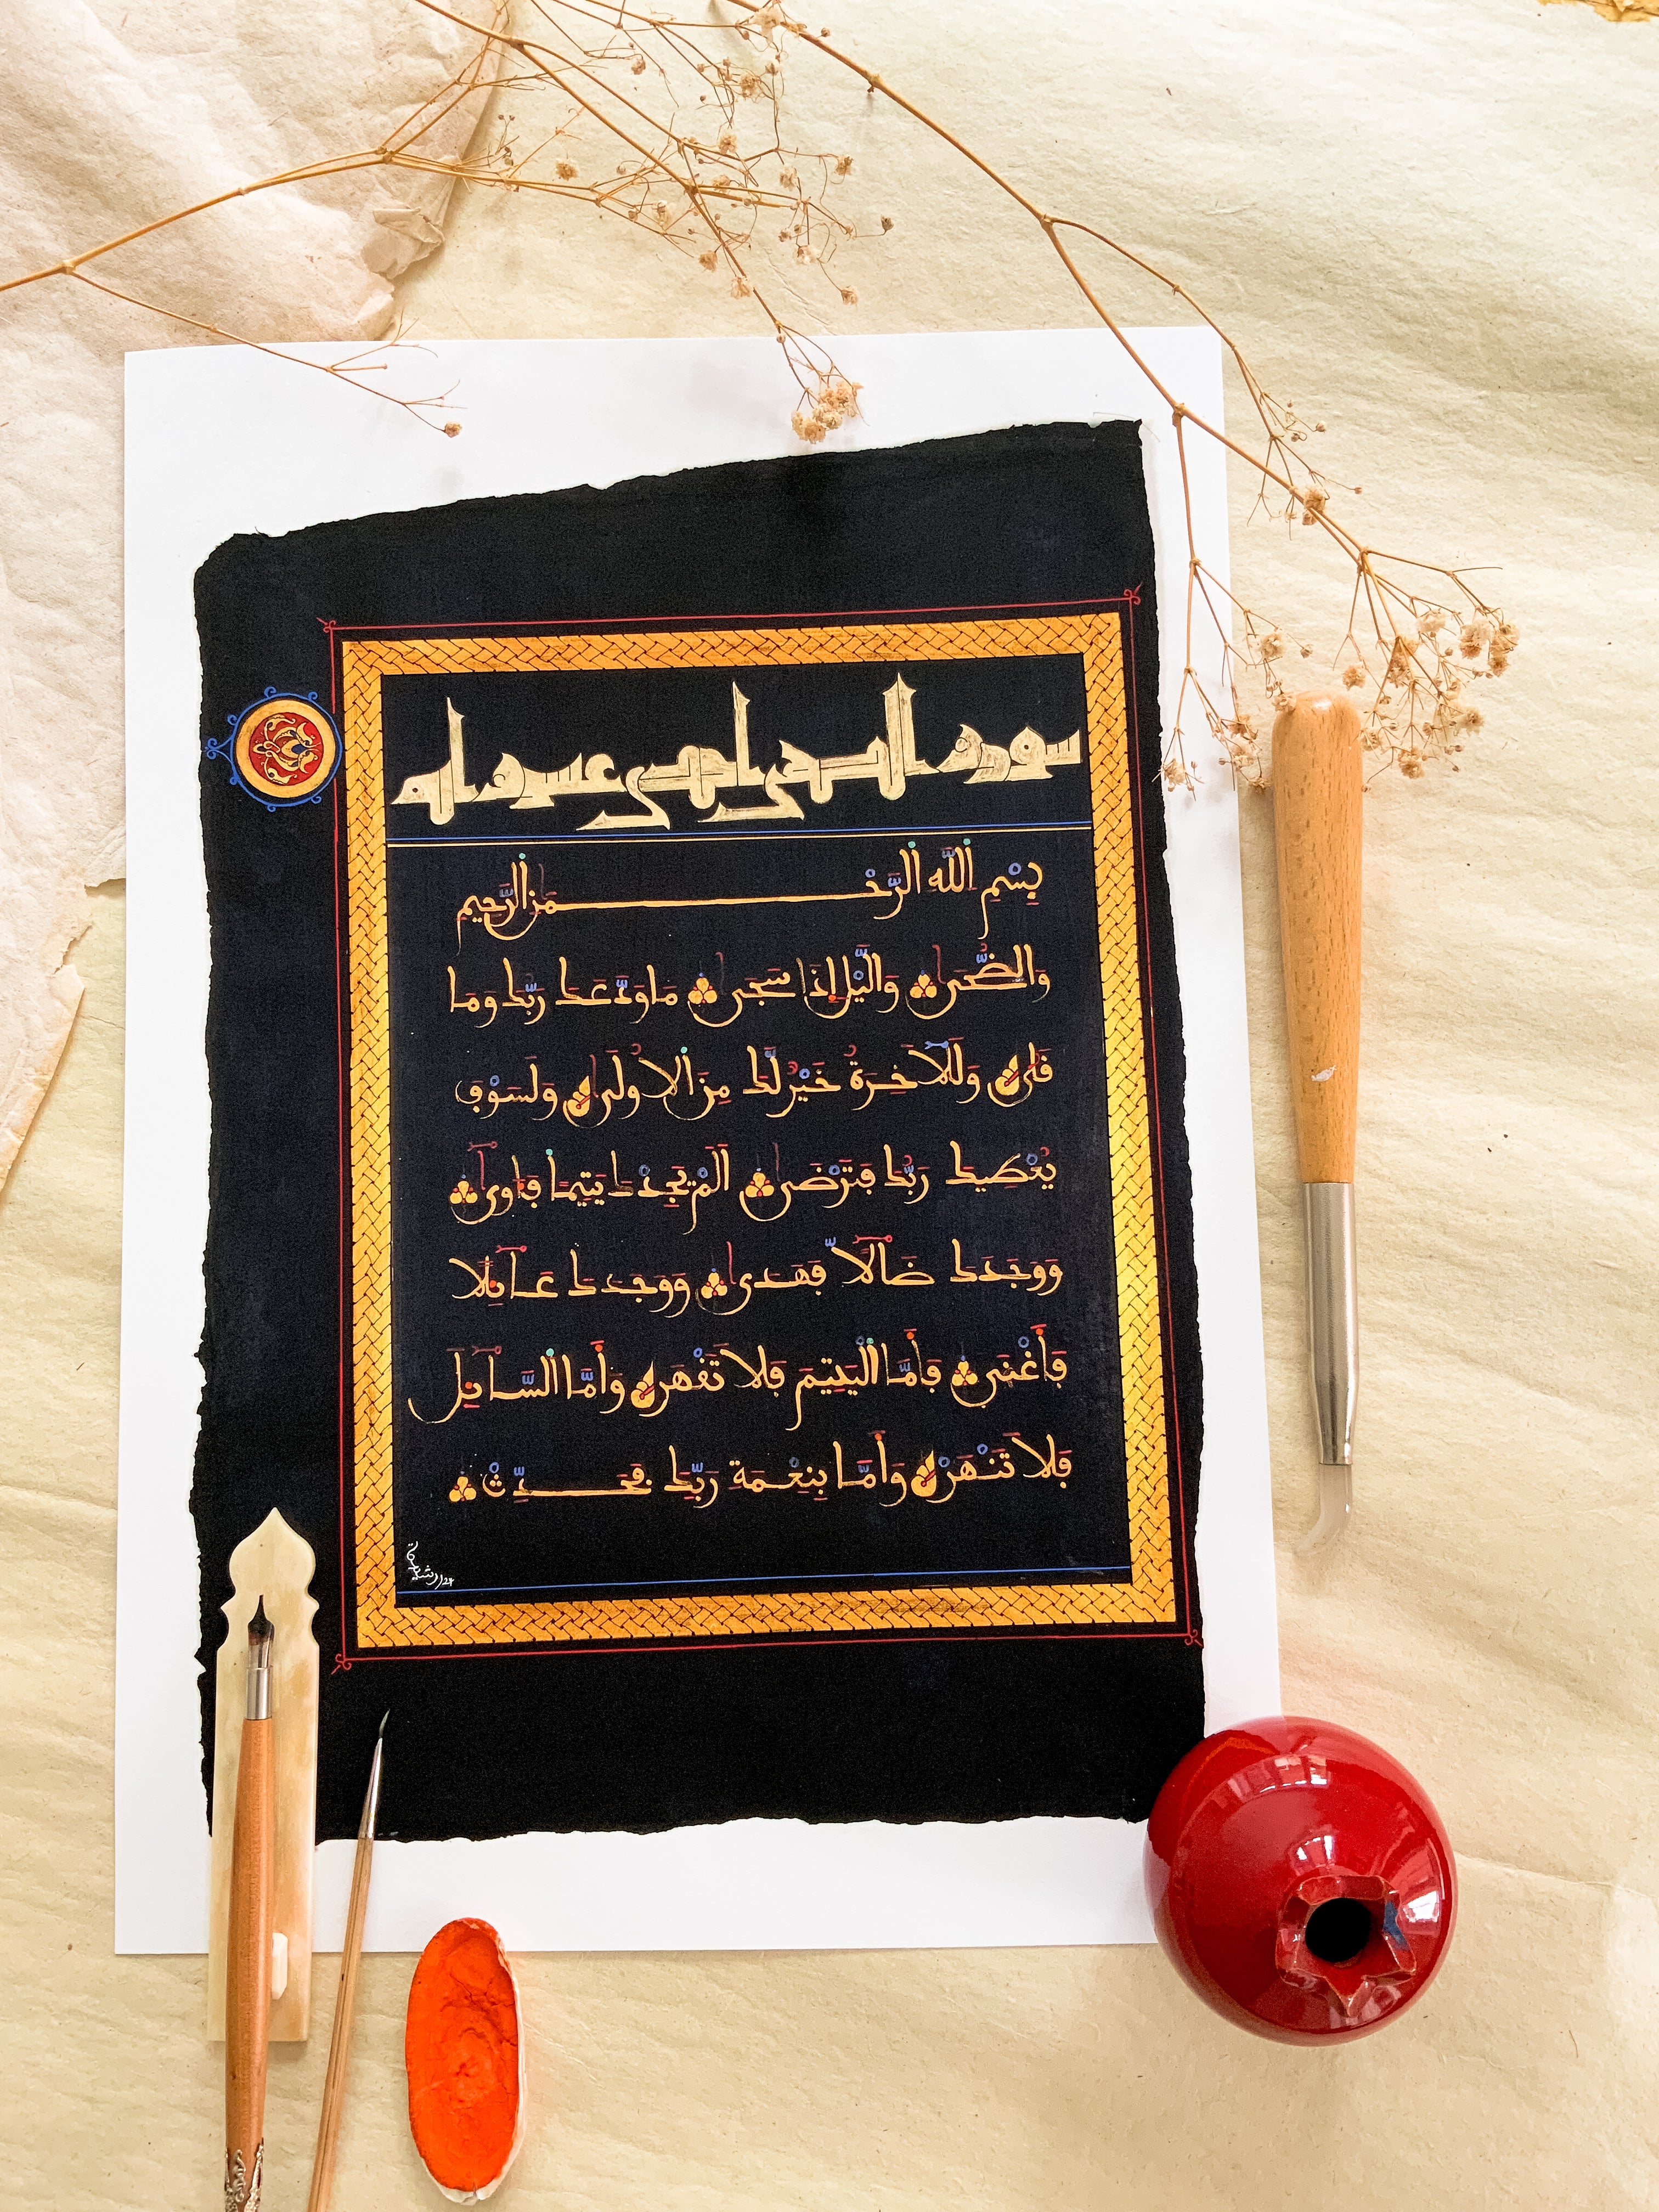 سورة الضحى احدى عشرة اية
بِسْمِ اللَّهِ الرَّحْمَٰنِ الرَّحِيمِ
وَالضُّحَىٰ وَاللَّيْلِ إِذَا سَجَىٰ مَا وَدَّعَكَ رَبُّكَ وَمَا
قَلَىٰ وَلَلْآخِرَةُ خَيْرٌ لَكَ مِنَ الْأُولَىٰ وَلَسَوْفَ
يُعْطِيكَ رَبُّكَ فَتَرْضَىٰ أَلَمْ يَجِدْكَ يَتِيمًا فَآوَىٰ
وَوَجَدَكَ ضَالًّا فَهَدَىٰ وَوَجَدَكَ عَائِلًا
فَأَغْنَىٰ فَأَمَّا الْيَتِيمَ فَلَا تَقْهَرْ وَأَمَّا السَّائِلَ
فَلَا تَنْهَرْ وَأَمَّا بِنِعْمَةِ رَبِّكَ فَحَدِّثْ